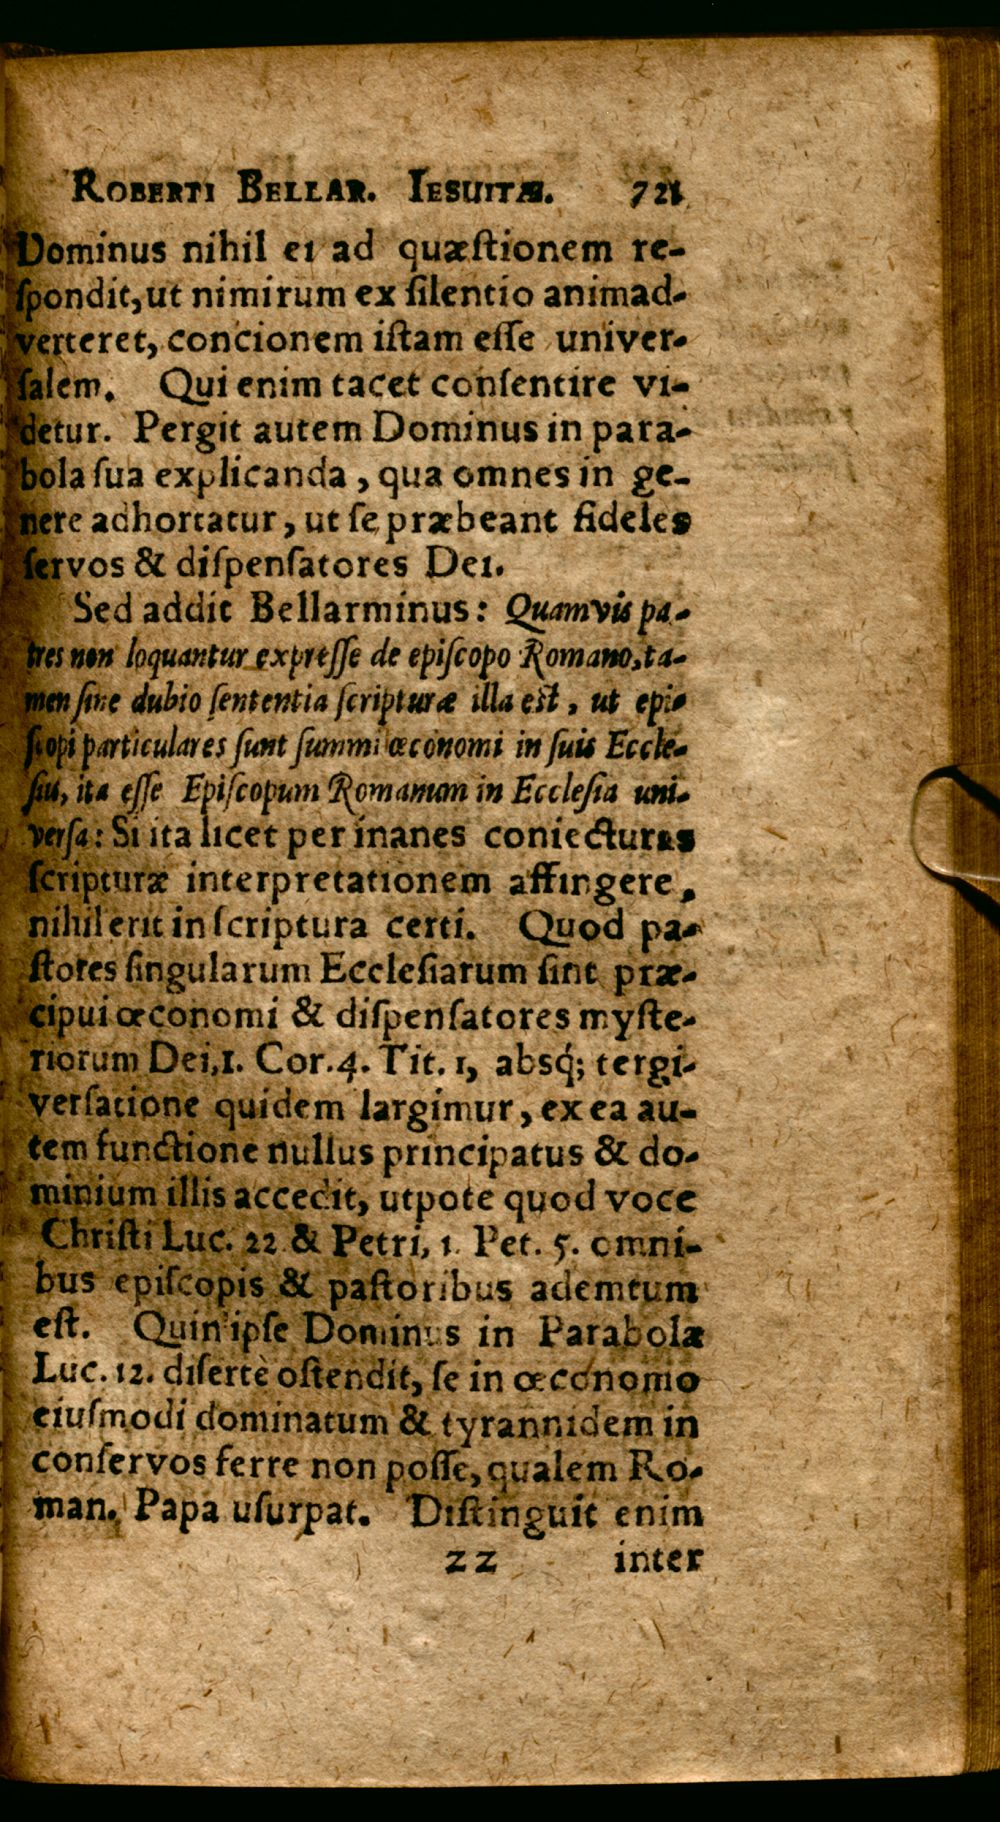 ROBERTI BELLAR. IESUITÆ. 721
Dominus nihil ei ad quæſtionem re-
ſpondit, ut nimirum ex ſilentio animad-
verteret, concionem iſtam eſſe univer-
ſalem. Qui enim tacet conſentire vi-
detur. Pergit autem Dominus in para-
bola ſua explicanda, qua omnes in ge-
nere adhortatur, ut ſe præbeant fideles
ſervos & diſpenſatores Dei.
Sed addit Bellarminus: Quamvis pa-
tres non loquantur expreſſe de epiſcopo Romano, ta-
men ſine dubio ſententia ſcripturæ illa eſt, ut epi-
ſcopi particulares ſunt ſummi œconomi in ſuis Eccle-
ſiis, ita eſſe Epiſcopum Romanum in Eccleſia uni-
verſa: Si ita licet per inanes coniecturas
ſcripturæ interpretationem affingere,
nihil erit in ſcriptura certi. Quod pa-
ſtores ſingularum Eccleſiarum ſint præ-
cipui œconomi & diſpenſatores myſte-
riorum Dei, 1. Cor. 4. Tit. 1, absq́; tergi-
verſatione quidem largimur, ex ea au-
tem functione nullus principatus & do-
minium illis accedit, utpote quod voce
Chriſti Luc. 22 & Petri, 1. Pet. 5. omni-
bus epiſcopis & paſtoribus ademtum
eſt. Quin ipſe Dominus in Parabola
Luc. 12. diſertè oſtendit, ſe in œconomo
eiuſmodi dominatum & tyrannidem in
conſervos ferre non poſſe, qualem Ro-
man. Papa uſurpat. Diſtinguit enim
zz inter